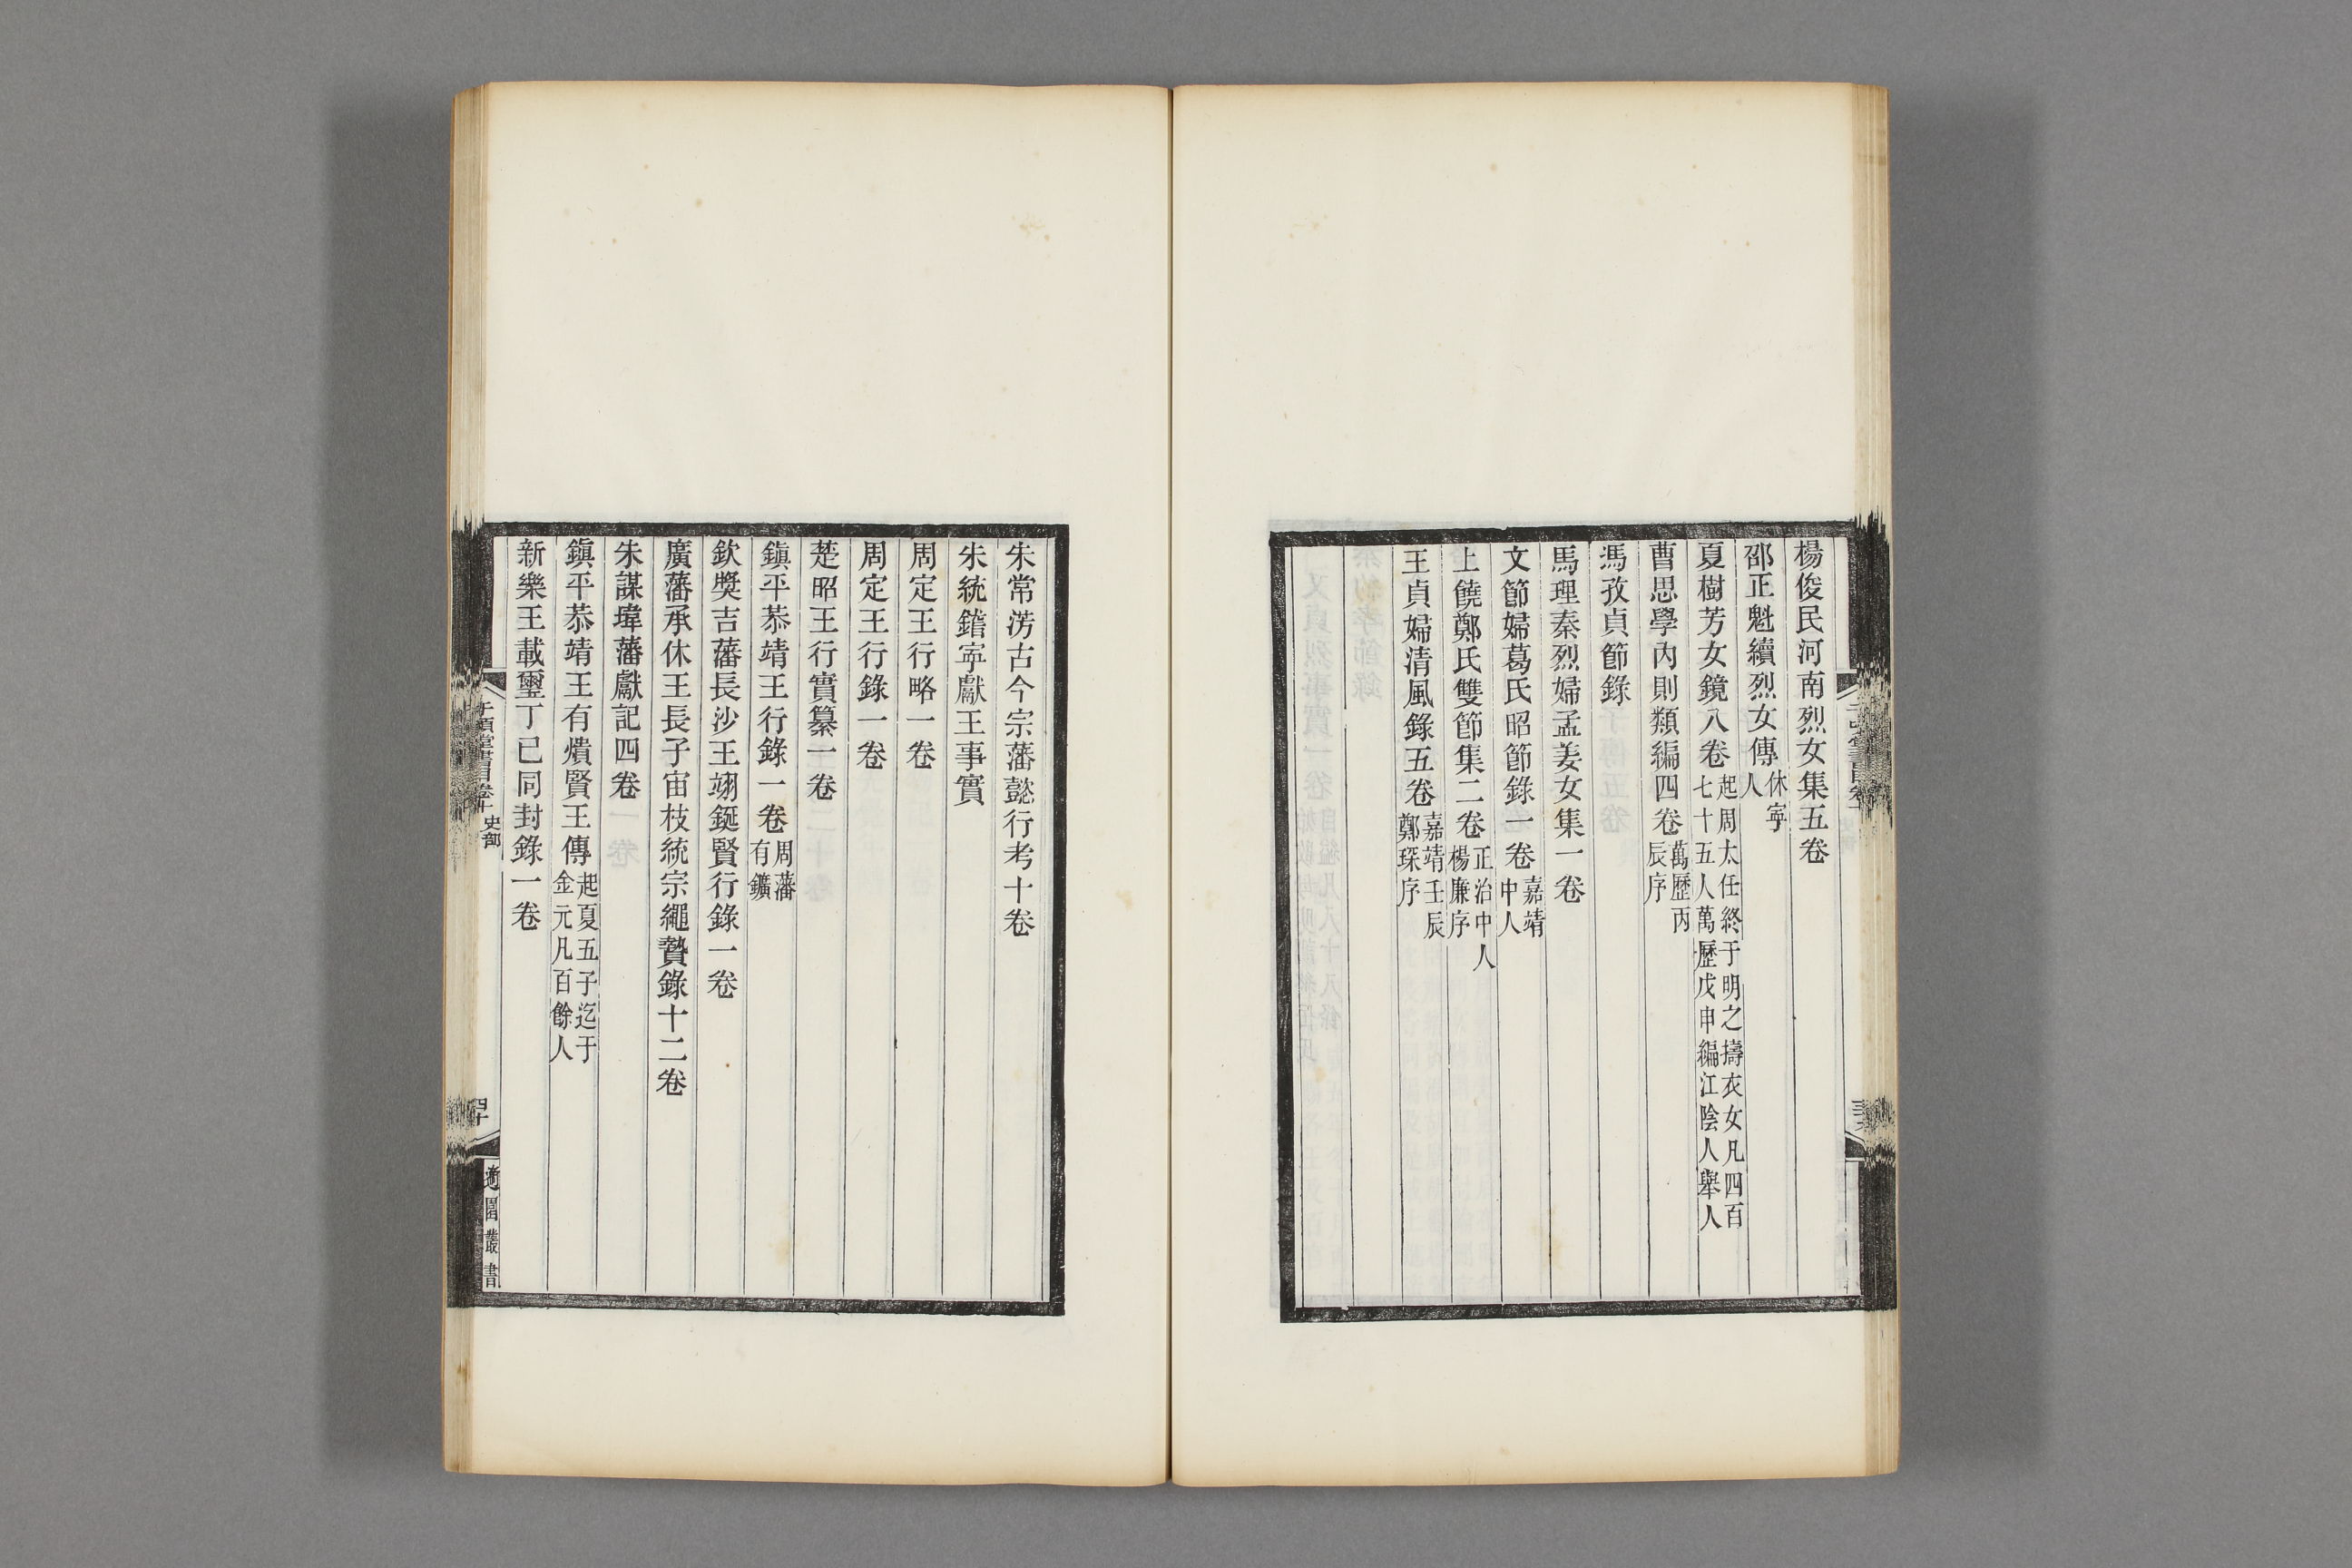 楊俊民河南烈女集五卷
邵正魁續烈女傳休寧人
夏樹芳女鏡八卷起周太任終于明之擣衣女凡四百七十五人萬歷戊申編江陰人舉人
曹思學內則類編四卷萬歷丙辰序
馮孜貞節錄
馬理秦烈婦孟姜女集一卷
文節婦葛氏昭節錄一卷嘉靖中人
上饒鄭氏雙節集二卷正治中人楊廉序
王貞婦清風錄五卷嘉靖壬辰鄭琛序
朱常淓古今宗藩懿行考十卷
朱統鍇寧獻王事實
周定王行略一卷
周定王行錄一卷
楚昭王行實纂一卷
鎮平恭靖王行錄一卷周藩有鑛
欽獎吉藩長沙王翊鋋賢行錄一卷
廣藩承休王長子宙枝統宗繩蟄錄十二卷
朱謀㙔藩獻記四卷
鎮平恭靖王有爌賢王傳起夏五子迄于金元凡百餘人
新樂王載璽丁巳同封錄一卷
千頃堂書目卷十 史部
四十
適園叢書